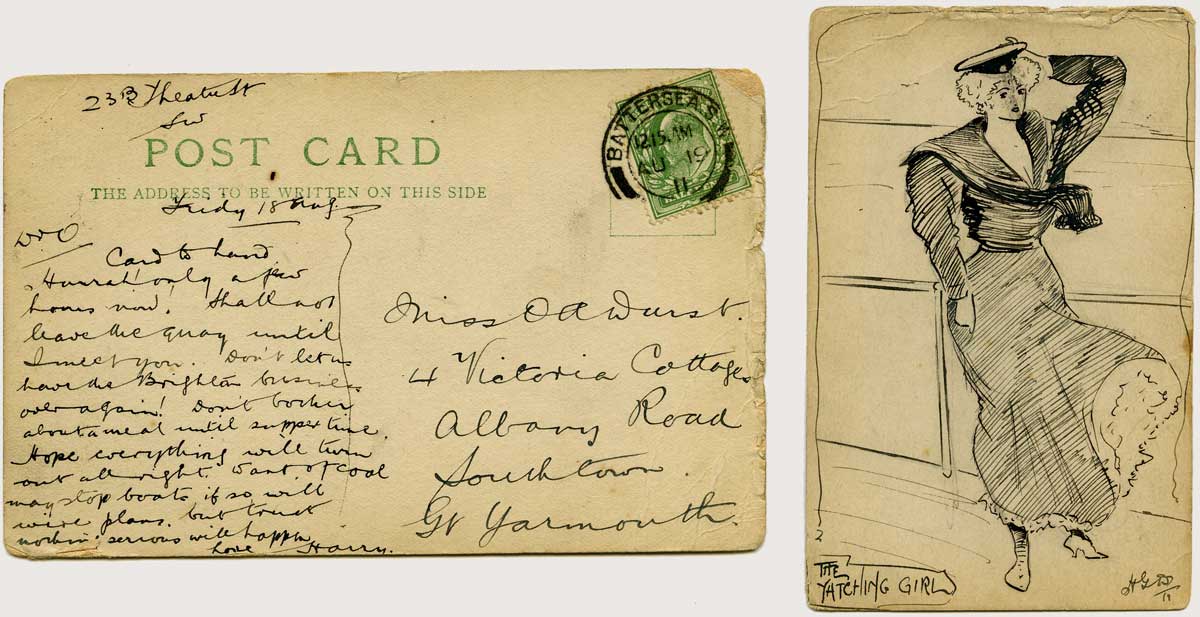 Theatre St
SW
POST CARD
THE ADDRESS TO BE WRITTEN ON THIS SIDE
BATTERSEA S.W.
12.15 AM
AU 19
11
18 Aug
Card to hand.
Hurrah! only a few
hours now! Shall not
leave the quay until
I meet you. Don't let us
have the Brighton business
over again! Don't bother
about a meal until supper time.
Hope everything will turn
out all right. Want of coal
may stop boats, if so will
wire plans, but trust
nothin' serious will happen
Love Harry.
Miss O A Durst.
4 Victoria Cottages
Albany Road
Southtown
Gt Yarmouth.
THE
YATCHING GIRL